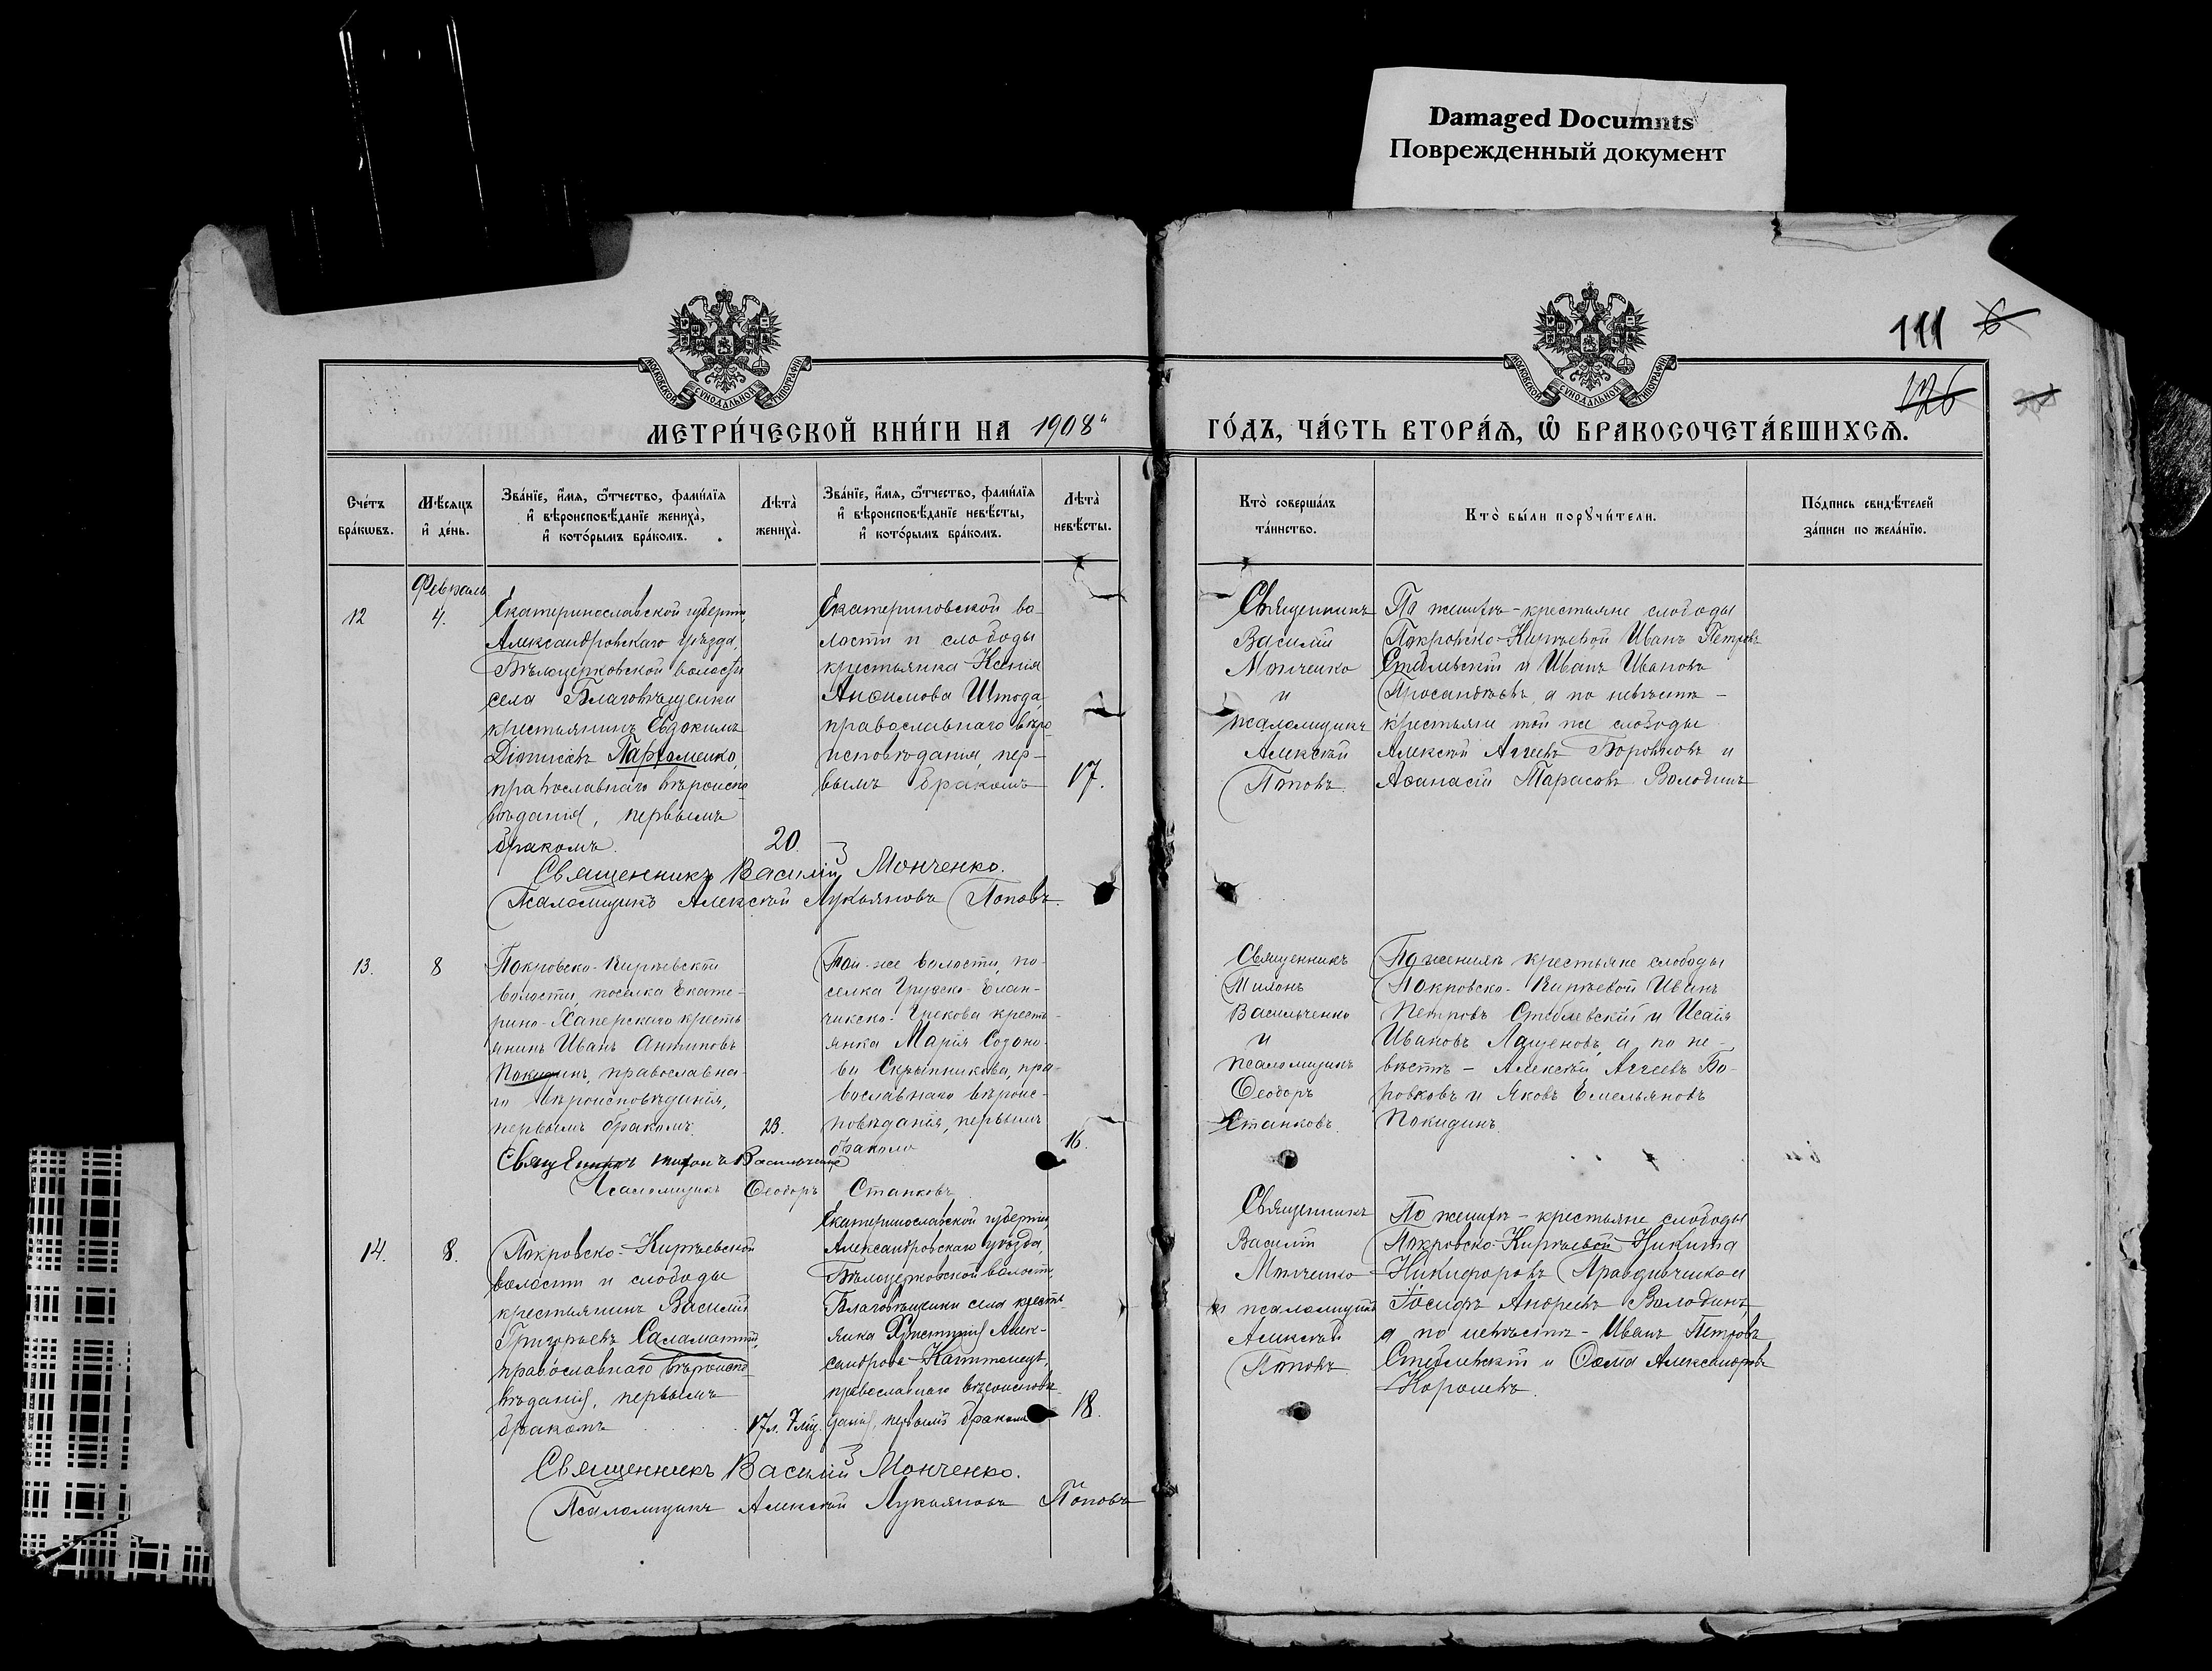 Damaged Documnts
Поврежденный документ
111 6
126
МОСКОВСКОЙ СУНОДАЛЬНОЙ ТИПОГРАФІИ
МОСКОВСКОЙ СУНОДАЛЬНОЙ ТИПОГРАФІИ
МЕТРИ́ЧЕСКОЙ КНИ́ГИ НА 1908й
ГО́ДЪ, ЧА́СТЬ ВТОРА́Я, Ѡ БРАКОСОЧЕТА́ВШИХСЯ.
Сче́тъ
бра́кѡвъ.
Мѣ́сяцъ
и҆ де́нь.
Зва́нїе, и҆́мя, ѻ҆́тчество, фами́лїя
и҆ вѣроисповѣ́данїе жениха̀,
и҆ кото́рымъ бра́комъ.
Лѣта̀
жениха̀.
Зва́нїе, и҆́мя, ѻ҆́тчество, фами́лїя
и҆ вѣроисповѣ́данїе невѣ́сты,
и҆ кото́рымъ бра́комъ.
Лѣта̀
невѣ́сты.
Кто̀ соверша́лъ
та́инство.
Кто̀ бы́ли порꙋчи́тели.
По́дпись свидѣ́телей
за́писи по жела́нїю.
Февраль
12
4.
Екатеринославской губерніи,
Александровскаго уѣзда,
Бѣлоцерковской волости
села Благовѣщенки
крестьянинъ Евдокимъ
Діонисіевъ Пархоменко,
православнаго вѣроиспо
вѣданія, первымъ
бракомъ.
20.
Екатериновской во-
лости и слободы
крестьянка Ксенія
Анфимова Шпода,
православнаго вѣро
исповѣданія, пер-
вымъ бракомъ
17.
Священникъ
Василій
Мончешко
и
псаломщикъ
Алексѣй
Поповъ.
По женихѣ - крестьяне слободы
Покровско-Кирѣевой Иванъ Петровъ
Стеблевскій и Иванъ Ивановъ
а по невѣстѣ -
крестьяне той же слободы
Алексѣй Аггеевъ Боровковъ и
Аѳанасій Тарасовъ Володинъ
Священникъ Василій Монченко.
Псаломщикъ Алексѣй Лукьяновъ Поповъ.
13.
8
Покровско-Кирѣевской
волости, поселка Екате-
рино-Хаперскаго кресть
янинъ Иванъ Антиповъ
Покидинъ, православна-
го вѣроисповѣданія,
первымъ бракомъ.
23.
Той-же волости, по-
селка Грузско-Елан-
чикско-Грекова кресть-
янка Марія Созоно-
ва Скрыпникова, пра-
вославнаго вѣроис-
повѣданія, первымъ
бракомъ
16.
Священникъ
Василченко
и
псаломщикъ
Ѳеодоръ
Станковъ.
По женихѣ крестьяне слободы
Покровско-Кирѣевой Иванъ
Петровъ Стеблевскій и Исаія
Ивановъ Лащеновъ, а по не-
вѣстѣ - Алексѣй Аггеевъ Бо-
ровковъ и Яковъ Емельяновъ
Покидинъ.
Священникъ Василченко
Псаломщикъ Ѳеодоръ Станковъ
14.
8.
Покровско-Кирѣевской
волости и слободы
крестьянинъ Василій
Григорьевъ Саламатинъ,
православнаго вѣроиспо
вѣданія, первымъ
бракомъ
17л. 7мц.
Екатеринославской губерніи,
Александровскаго уѣзда,
Бѣлоцерковской волости,
Благовѣщенки села кресть-
янка Христинія Алек-
сандрова
православнаго вѣроисповѣ-
данія, первымъ бракомъ
18.
Священникъ
Василій
Мончешко
и псаломщикъ
Алексѣй
Поповъ
По женихѣ - крестьяне слободы
Покровско-Кирѣевой Никита
Никифоровъ Правдивченко и
Іосифъ Андреевъ Володинъ,
а по невѣстѣ - Иванъ Петровъ
Стеблевскій и Ѳома Александровъ
Королевъ.
Священникъ Василій Монченко.
Псаломщикъ Алексѣй Лукьяновъ Поповъ